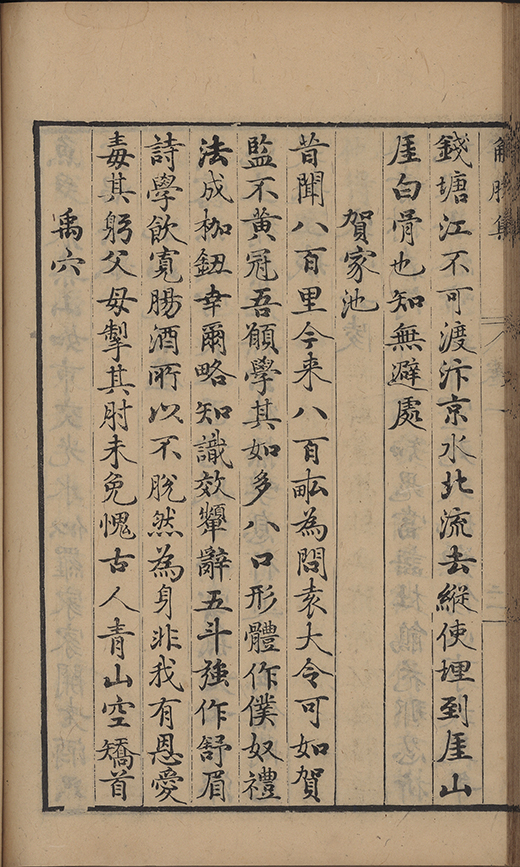 解脫集
錢塘江不可渡汴京水北流去縱使埋到厓山
厓白骨也知無避處
賀家池
昔聞八百里今来八百畝為問袁大令可如賀
監不黃冠吾願學其如多八口形體作僕奴禮
法成枷鈕幸爾略知識效顰辭五斗強作舒眉
詩學飲寬腸酒所以不脫然為身非我有恩愛
毒其躬父母掣其肘未免愧古人青山空矯首
禹穴